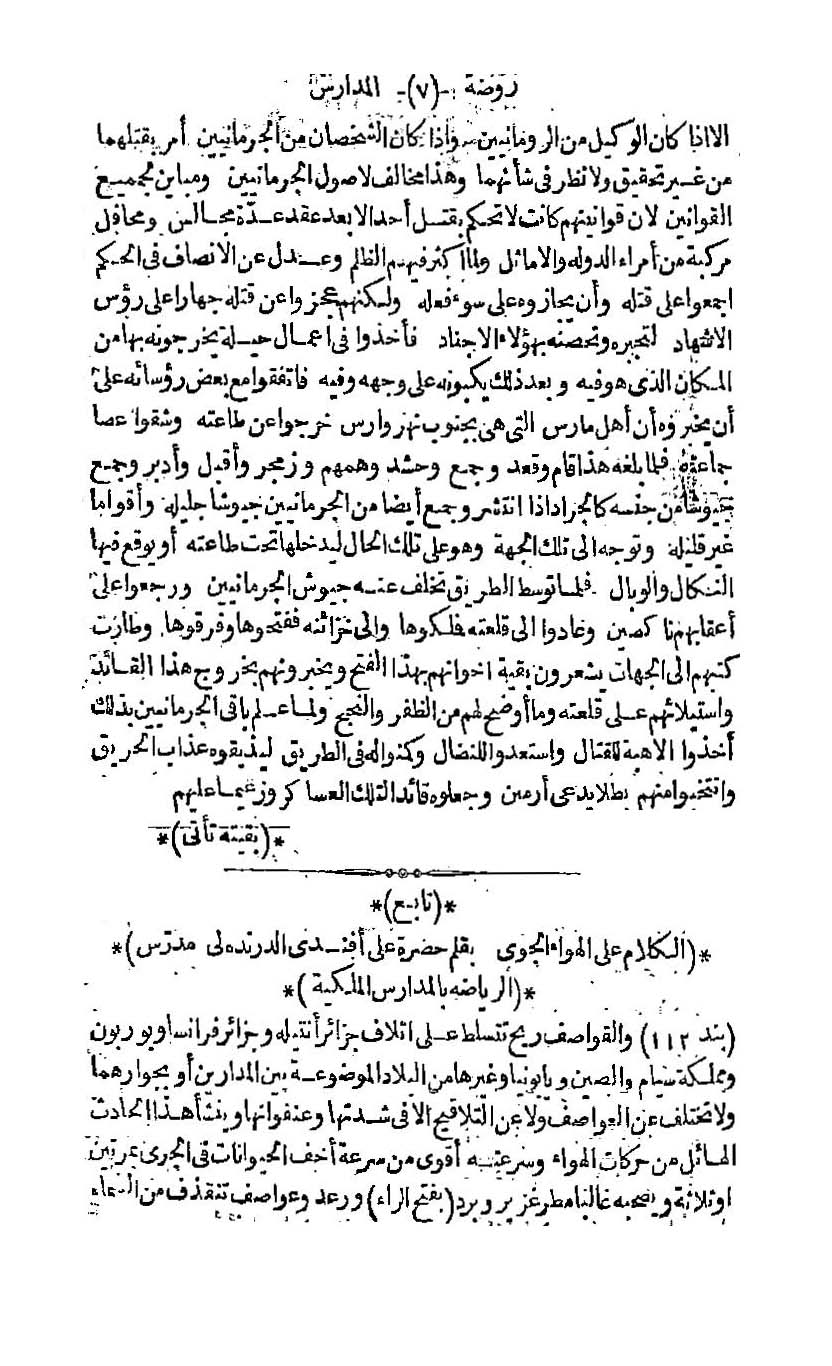 روضة -(٧)- المدارس
الا اذا كان الوكيل من الرومانيين واذا كان الشخصان من الجرمانيين أمر بقتلهما
من غير تحقيق ولا نظر فى شأنهما وهذا مخالف لاصول الجرمانيين ومباين لجميع
القوانين لان قوانينهم كانت لا تحكم بقتل أحد الا بعد عقد عدة مجالس ومحافل
مركبة من أمراء الدوله والاماثل ولما اكثر فيهم الظلم وعدل عن الانصاف فى الحكم
اجمعوا على قتله وأن يجازوه على سوء فعله ولكنهم عجزوا عن قتله جهارا على رؤس
الاشهاد لتجبره وتحصنه بهؤلاء الاجناد فأخذوا فى اعمال حيلة يخرجونه بها من
المكان الذى هو فيه و بعد ذلك يكبونه على وجهه وفيه فاتفقوا مع بعض رؤسائه على
أن يخبروه أن أهل مارس التى هى بجنوب نهر وارس خرجوا عن طاعته وشقوا عصا
جماعته فلما بلغه هذا قام وقعد وجمع وحشد وهمهم وزمجر وأقبل وأدبر وجمع
جيوشا من جنسه كالجراد اذا انتشر وجمع أيضا من الجرمانيين جيوشا جليله وأقواما
غير قليله وتوجه الى تلك الجهة وهو على تلك الحال ليدخلها تحت طاعته أو يوقع فيها
النكال والوبال فلما توسط الطريق تخلف عنه جيوش الجرمانيين ورجعوا على
أعقابهم ناكصين وعادوا الى قلعته فملكوها والى خزائنه ففتحوها وفرقوها وطارت
كتبهم الى الجهات يشعرون بقية اخوانهم بهذا الفتح ويخبرونهم بخروج هذا القائد
واستيلائهم على قلعته وما أوضح لهم من الظفر والنجح ولما علم باقى الجرمانيين بذلك
أخذوا الاهبة للقتال واستعدوا للنضال وكنوا له فى الطريق ليذيقوه عذاب الحريق
وانتخبوا منهم بطلا يدعى أرمين وجعلوه قائدا لتلك العساكر وزعيما عليهم
*(بقيته تأتى)*
*(تابع)*
*(الكلام على الهواء الجوى بقلم حضرة على أفندى الدرنده لى مدرس)*
*(الرياضه بالمدارس الملكية)*
(بند ١١٢) والقواصف ريح تتسلط على اتلاف جزائر أنتيله وجزائر فرانسا وبوربون
ومملكة سيام والصين ويابونيا وغيرها من البلاد الموضوعة بين المدارين أو بجوارهما
ولا تختلف عن العواصف ولا عن التلاقيح الا فى شدتها وعنفوانها وينشأ هذا الحادث
الهائل من حركات الهواء وسرعته أقوى من سرعة أخف الحيوانات فى الجرى بمرتين
او ثلاثة ويصحبه غالبا مطر غزير وبرد (بفتح الراء) ورعد وعواصف تنقذف من السماء